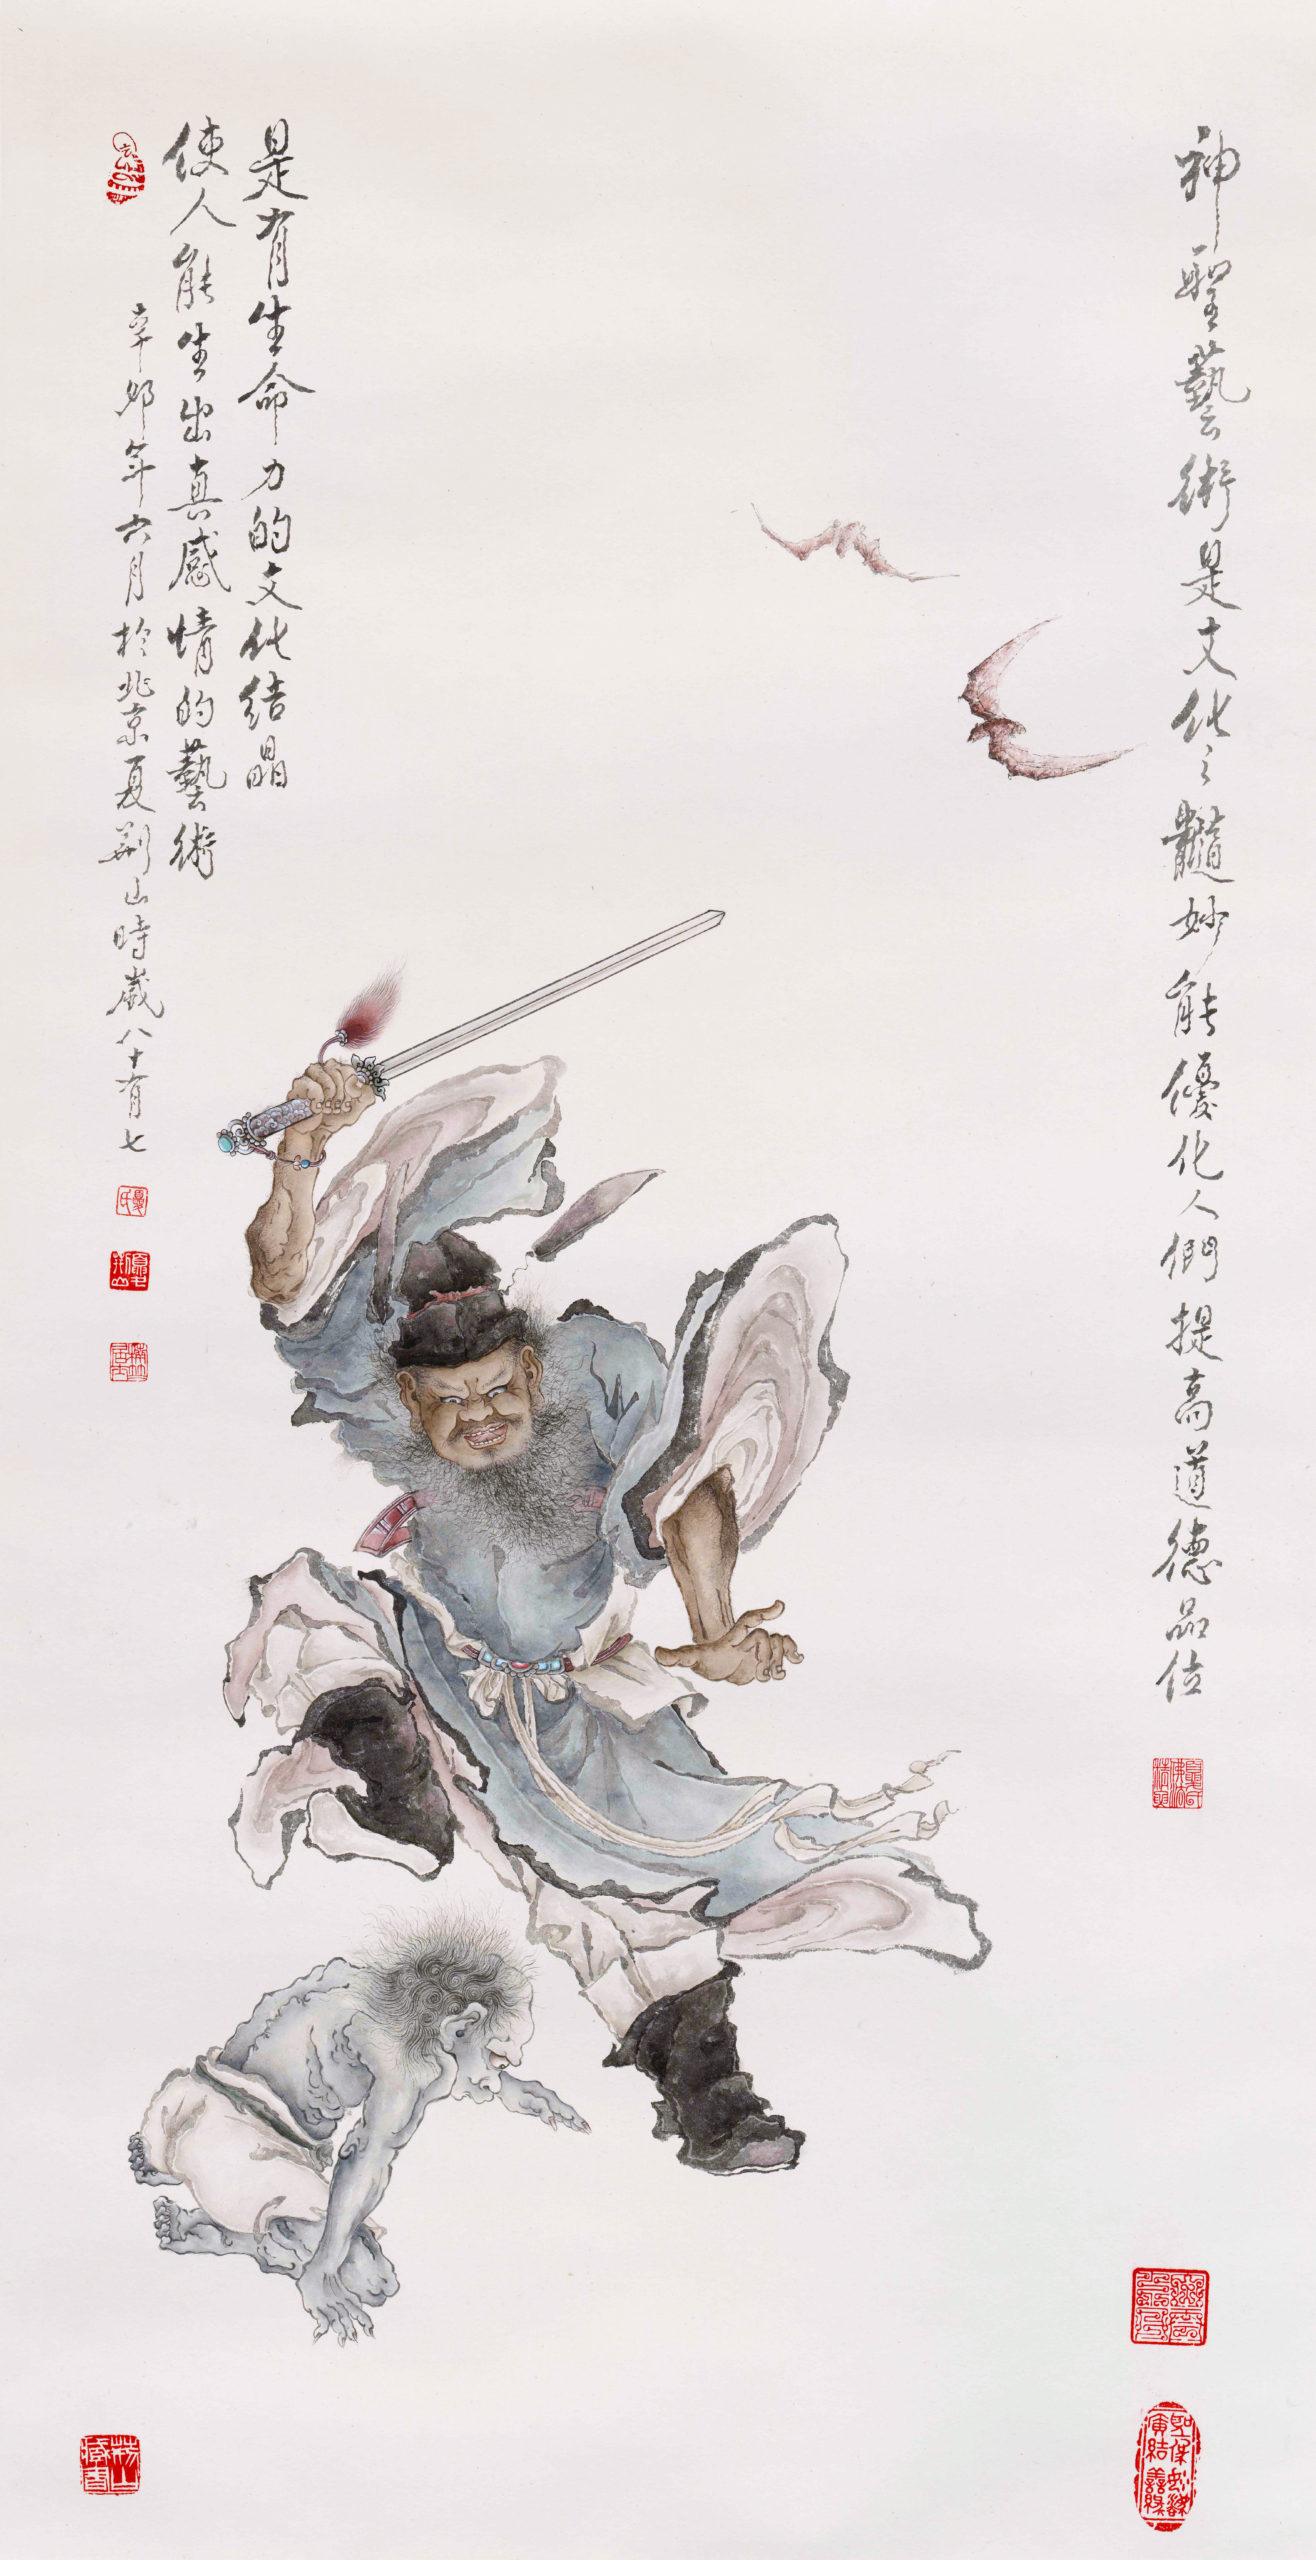 神聖藝術是文化之髓妙能優化人們提高道德品位
是有生命力的文化結晶
使人能生出真感情的藝術
辛卯年六月於北京夏荆山時歲八十有七
夏氏